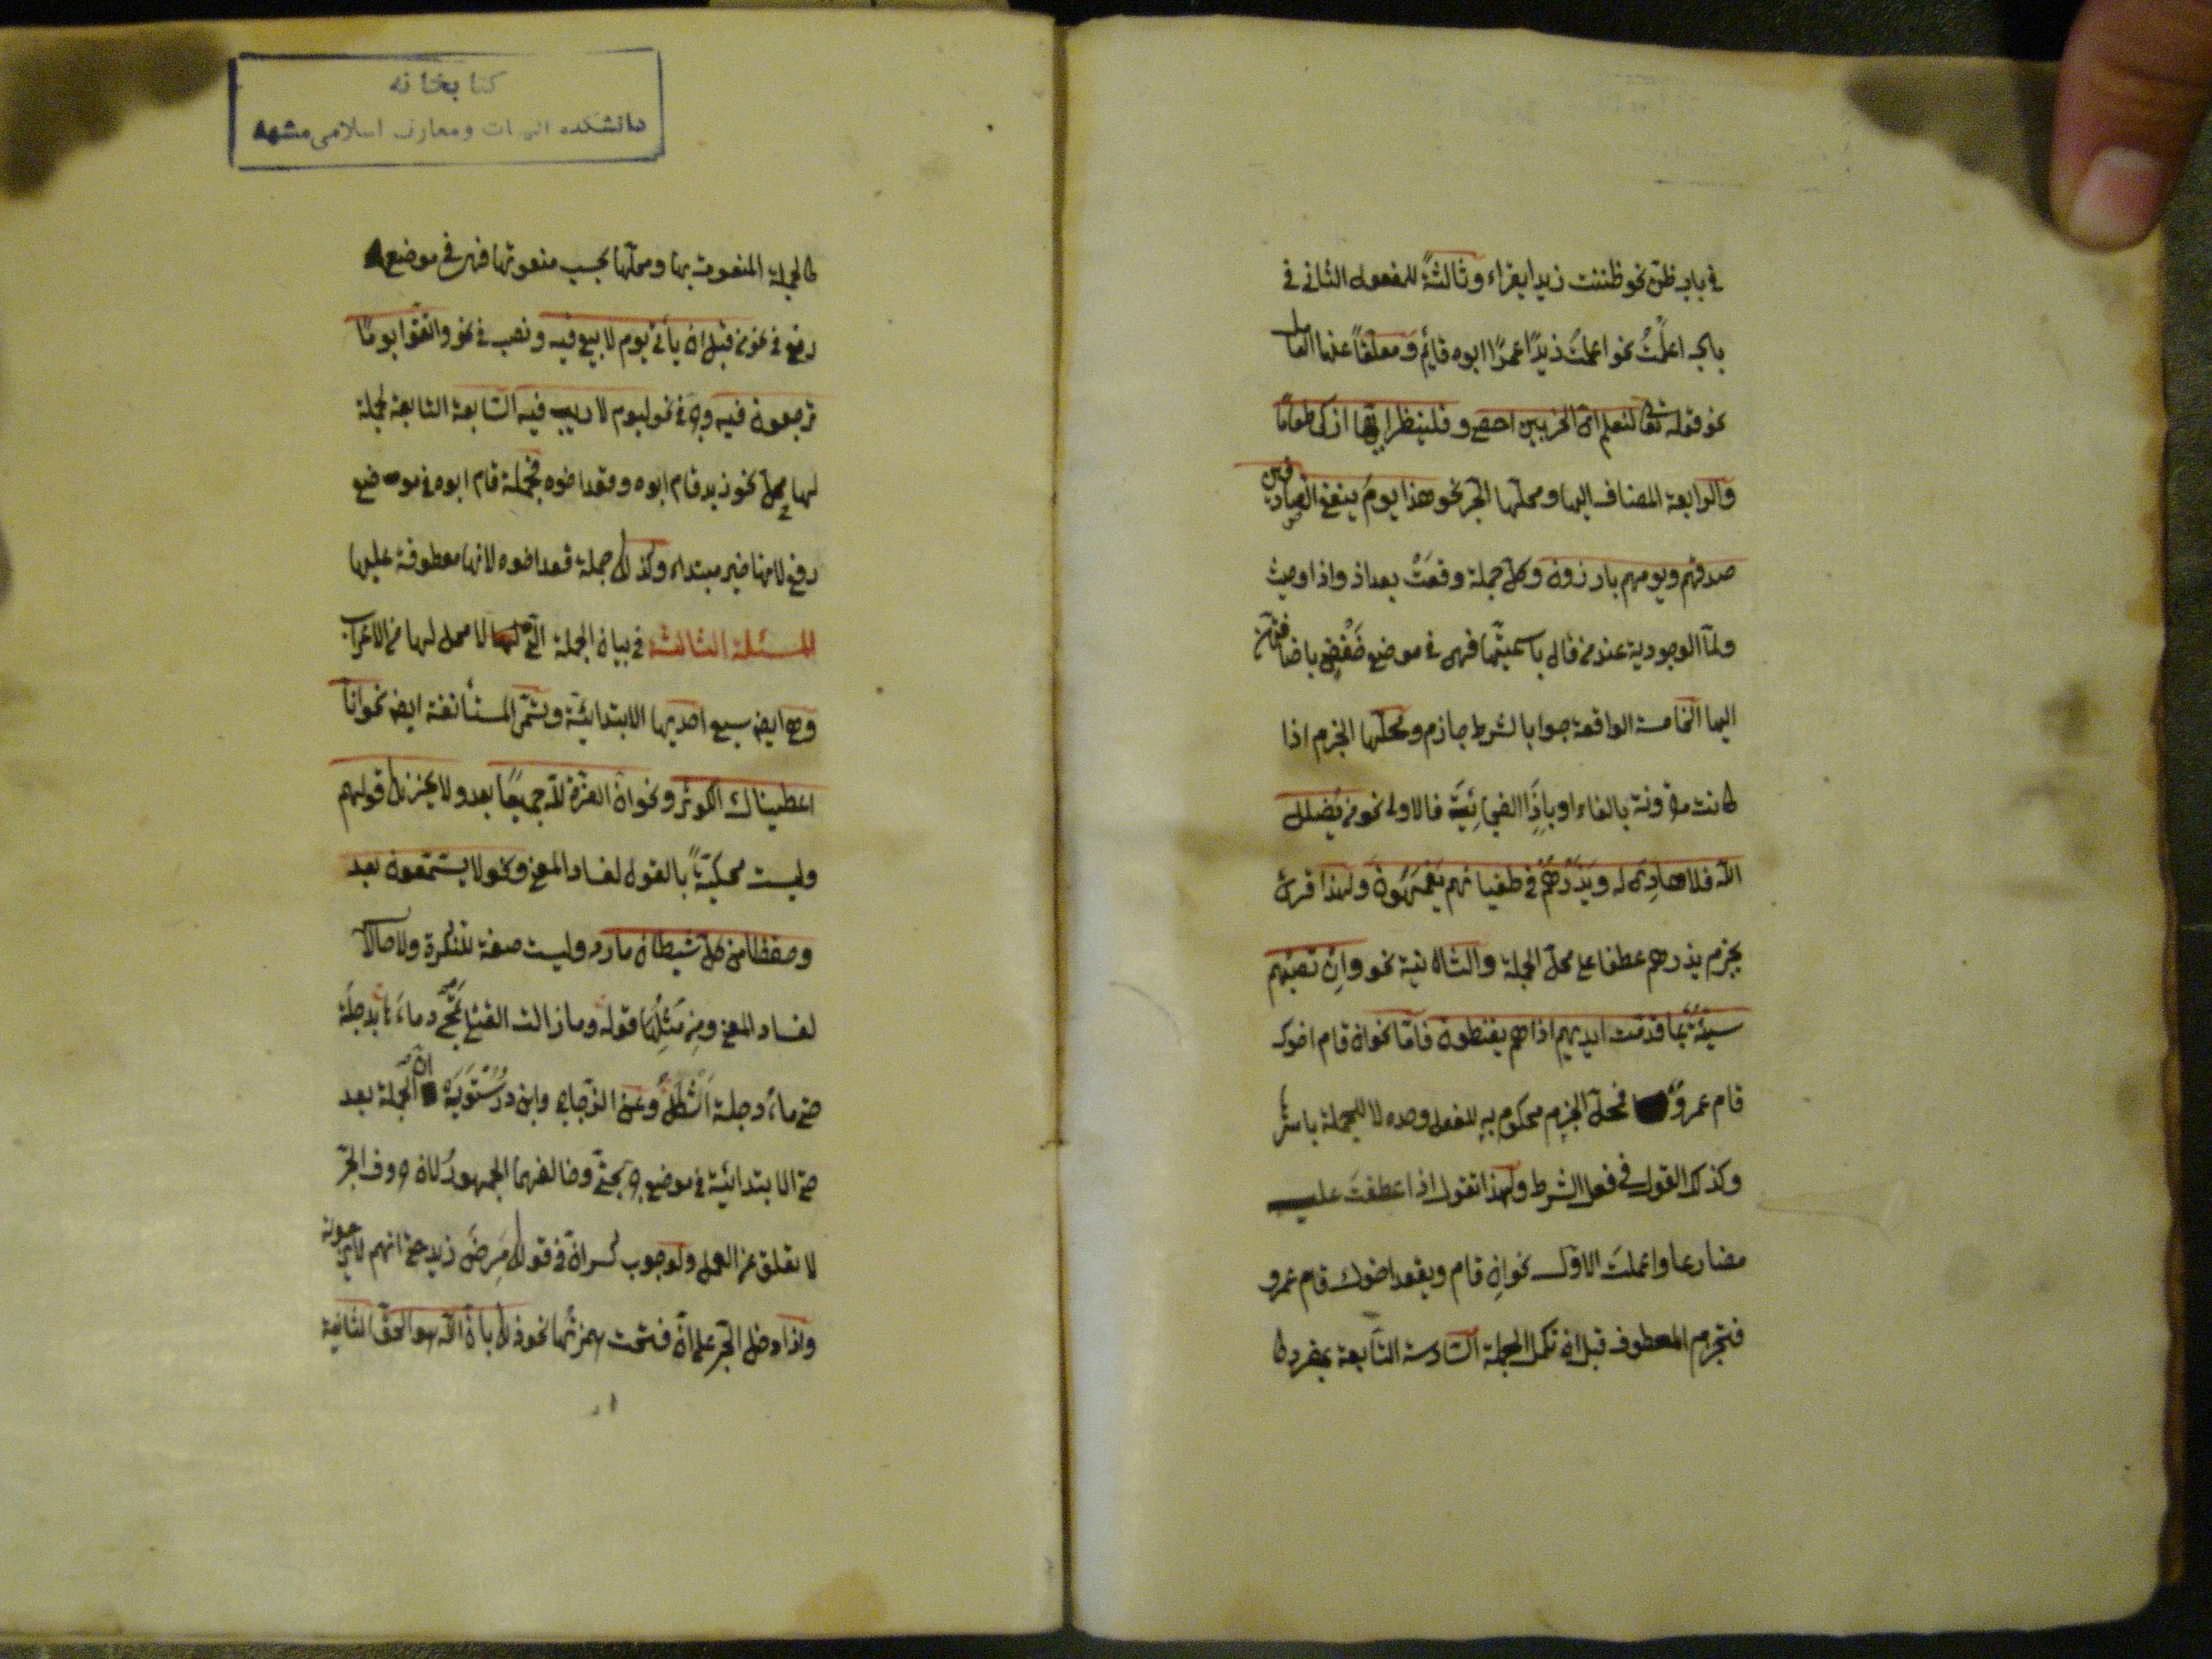 في باب ظنّ نحو ظننت زيدا يقراء وثالثةً للمفعول الثاني في
باب اعلمْتُ نحو اعلمتُ زيدًا عمرًا ابوه قايمٌ ومعلّقاً عنها العامل
نحو قوله تعالى لنعلم ايّ الحزبين احصى و فلينظر ايّها ازكى طعامًا
والرابعة المضاف اليها ومحلّها الجّر نحو هذا يومُ ينفع الصادقين
صدقهم ويومهم بارزون وكلّ جملة وقعَتْ بعد اذ واذا وحيث
ولمّا الوجودية عند من قال باسميّتها فهي في موضع خَفْضٍ باضافتهنّ
اليها الخامسة الواقعة جوابا لشرط جازم ومحلّها الجزم اذا
كانت مقرونة بالفاء او باِذَا الفجائِيَّة فالاولى نحو من يُضلل
اللّه فلا هادِيَ له ويَذَرْهُمْ في طغيانهم يَعْمَهُونَ ولهذا قرئ
بجزم يذرهم عطفا على محلّ الجملة والثانية نحو واِن تصبهم
سيئةٌ بمَا قدّمت ايديهم اذاهم يقنطون فامّا نحو ان قام اخوك
قام عمروٌ فمحلّ الجزم محكوم بِهِ للفعل وحده لا للجملة باسرها
وكذلك القول في فعل الشرط ولهذا تقول اذا عطفتَ عليه
مضارعا واعملتَ الاوّل نحو اِن قام ويقعد اخوك قام عمرو
فتجزم المعطوف قبل ان تكمل الجملة السّادسة التّابعة بمفرد
كالجملة المنعوت بها ومحلّها بحسب منعوتها فهي في موضع
رفع في نحو من قبل ان يأتي يوم لا بيع فيه ونصب في نحو واتّقوا يومًا
ترجعون فيه وجرّ في نحو ليوم لا ريب فيه السّابعة التابعة لجملة
لها محلّ نحو زيد قام ابوه وقعد اخوه فجملة قام ابوه في موضع
رفع لانها خبر مبتداء وكذلك جملة قعد اخوه لانها معطوفة عليها
المسئلة الثالثة في بيان الجملة الّتي لا محل لها من الاعراب
وهى ايض سبع احديها الابتدايئة وتسمّى المستأنفة ايض نحو انّا
اعطيناك الكوثر ونحو ان العزّة للّه جميعًا بعد ولا يحزنك قولهم
وليست محكيّةً بالقول لفساد المعنى ونحو لا يسّمّعون بعد
وحفظا من كلّ شيطان مارد وليست صفة للنكرة ولا حالا
لفساد المعنى ومِن مُثِلُها قوله وما زالت القتلى تمُجّ دماءَها بدجلة
حتى ماءُ دجلة اَشْكَلُ وعن الزّجاج وابن دُرُسْتَوَيْه انّ الجملة بعد
حتى الابتدائيّة في موضع جرّ بحتّى وخالفهما الجمهورُ لان حروف الجرّ
لا تعلق عن العمل ولوجوب كسر انّ في قولك مَرِضَ زيد حتى انهم لا يرجونه
واذا دخل الجّر على انّ فتحت همزتُها نحو ذلك بانّ اللّه هو الحقّ الثانية
كتابخانه
دانشكده الهيات ومعارف اسلامى مشهد